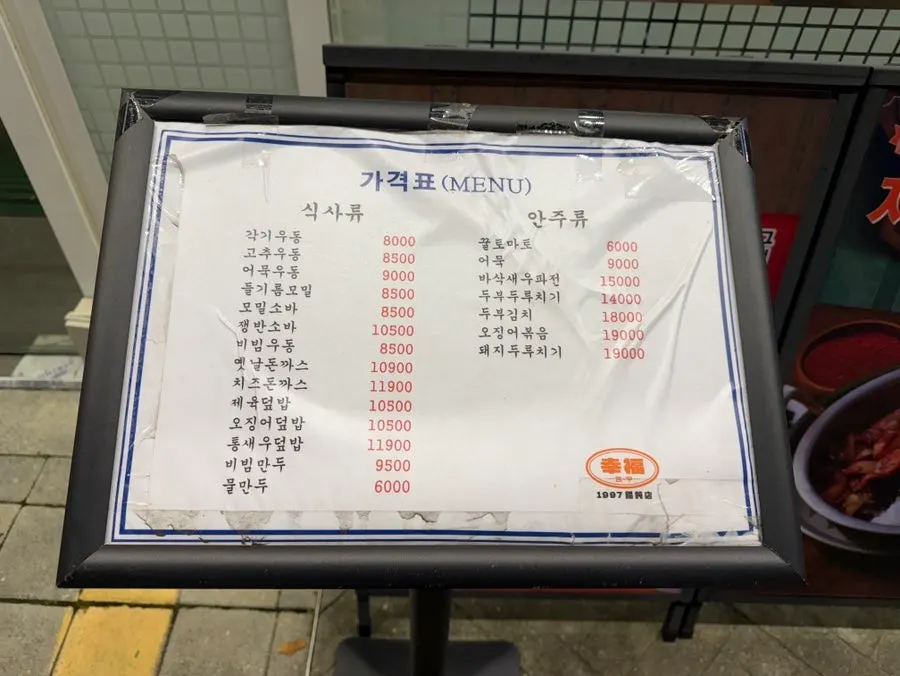 가격표 (MENU)
식사류
각기우동 8000
고추우동 8500
어묵우동 9000
들기름모밀 8500
모밀소바 8500
쟁반소바 10500
비빔우동 8500
옛날돈까스 10900
치즈돈까스 11900
제육덮밥 10500
오징어덮밥 10500
통새우덮밥 11900
비빔만두 9500
물만두 6000
안주류
꿀토마토 6000
어묵 9000
바삭새우파전 15000
두부두루치기 14000
두부김치 18000
오징어볶음 19000
돼지두루치기 19000
幸福
1997